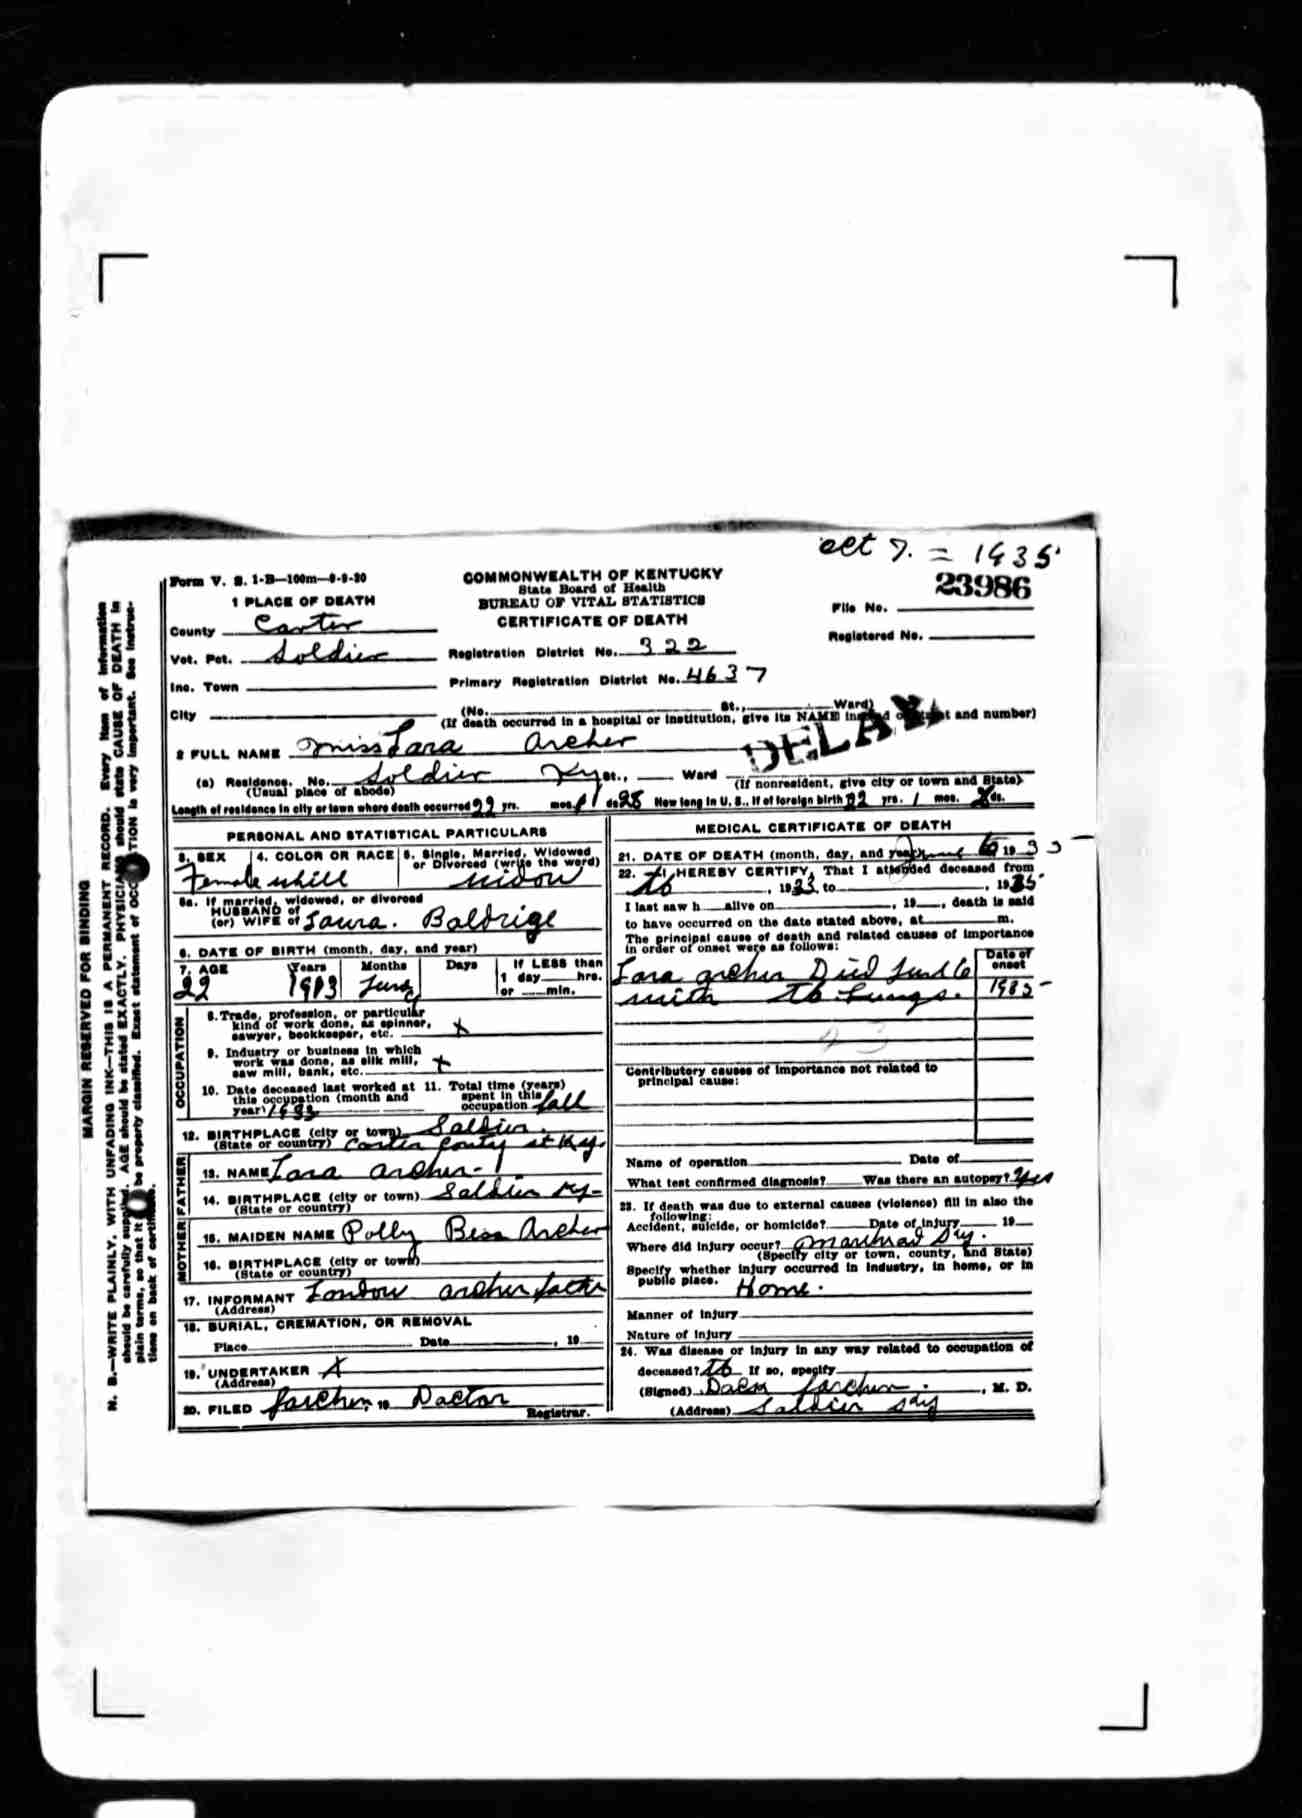 Oct 7. = 1935
Form V. S. 1-B—100m—9-9-20
COMMONWEALTH OF KENTUCKY
State Board of Health
BUREAU OF VITAL STATISTICS
CERTIFICATE OF DEATH
23986
File No.
Registered No.
1 PLACE OF DEATH
County Carter
Vot. Pct. Soldier
Inc. Town
City
Registration District No. 322
Primary Registration District No. 4637
(No. St., Ward)
(If death occurred in a hospital or institution, give its NAME and number)
DELAY
2 FULL NAME Miss Lara Archer
(a) Residence. No. Soldier Ky St., Ward
(Usual place of abode) (If nonresident, give city or town and State)
Length of residence in city or town where death occurred 22 yrs. mos. 1 ds. 28 How long in U. S., if of foreign birth 22 yrs. 1 mos. ds.
PERSONAL AND STATISTICAL PARTICULARS
3. SEX 4. COLOR OR RACE 5. Single, Married, Widowed
or Divorced (write the word)
Female whill widow
5a. If married, widowed, or divorced
HUSBAND of
(or) WIFE of Laura. Baldrige
6. DATE OF BIRTH (month, day, and year)
7. AGE Years Months Days If LESS than
1 day hrs.
or min.
22 1913
OCCUPATION
8. Trade, profession, or particular
kind of work done, as spinner,
sawyer, bookkeeper, etc. x
9. Industry or business in which
work was done, as silk mill,
saw mill, bank, etc. x
10. Date deceased last worked at
this occupation (month and
year) 1933
11. Total time (years)
spent in this
occupation fall
12. BIRTHPLACE (city or town) Saldier.
(State or country) Carter Conty st Ky.
FATHER
13. NAME Lara archer
14. BIRTHPLACE (city or town) Saldier Ky-
(State or country)
MOTHER
15. MAIDEN NAME Polly Bess Archer
16. BIRTHPLACE (city or town)
(State or country)
17. INFORMANT Landow archer
(Address)
18. BURIAL, CREMATION, OR REMOVAL
Place Date , 19
19. UNDERTAKER X
(Address)
20. FILED , 19 Doctor
Registrar.
MEDICAL CERTIFICATE OF DEATH
21. DATE OF DEATH (month, day, and year) June 6 1935
22. I HEREBY CERTIFY, That I attended deceased from
tb , 1933, to , 1935
I last saw h alive on , 19 , death is said
to have occurred on the date stated above, at m.
The principal cause of death and related causes of importance
in order of onset were as follows:
Date of
onset
Lara archer Died 6
with tb Lungs. 1935
Contributory causes of importance not related to
principal cause:
Name of operation Date of
What test confirmed diagnosis? Was there an autopsy? Yes
23. If death was due to external causes (violence) fill in also the
following:
Accident, suicide, or homicide? Date of injury 19
Where did injury occur?
(Specify city or town, county, and State)
Specify whether injury occurred in industry, in home, or in
public place. Home.
Manner of injury
Nature of injury
24. Was disease or injury in any way related to occupation of
deceased? tb If so, specify
(Signed) , M. D.
(Address) Saldier
MARGIN RESERVED FOR BINDING
N. B.—WRITE PLAINLY, WITH UNFADING INK—THIS IS A PERMANENT RECORD. Every item of information
should be carefully supplied. AGE should be stated EXACTLY. PHYSICIANS should state CAUSE OF DEATH in
plain terms, so that it be properly classified. Exact statement of OCCUPATION is very important. See instruc-
tions on back of certificate.